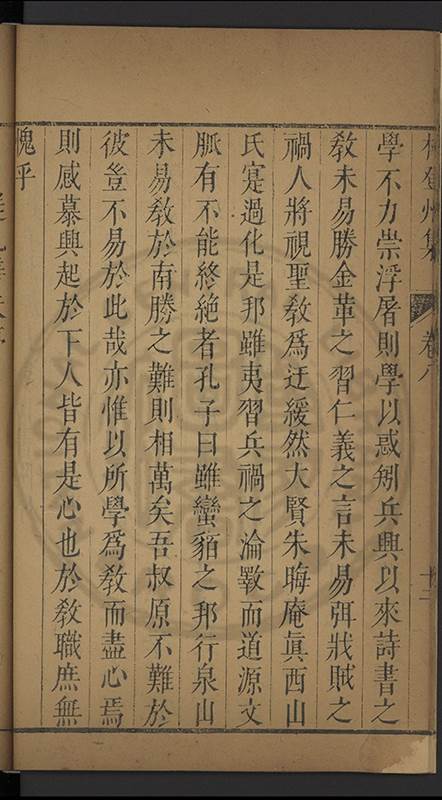 州集 卷八 十二
學不力崇浮屠則學以惑矧兵興以來詩書之
教未易勝金革之習仁義之言未易弭戕賊之
禍人將視聖教為迂緩然大賢朱晦庵眞西山
氏寔過化是邦雖夷習兵禍之淪斁而道源文
脈有不能終絕者孔子曰雖蠻貊之邦行泉山
未易教於南勝之難則相萬矣吾叔原不難於
彼豈不易於此哉亦惟以所學為教而盡心焉
則感慕興起於下人皆有是心也於教職庶無
愧乎